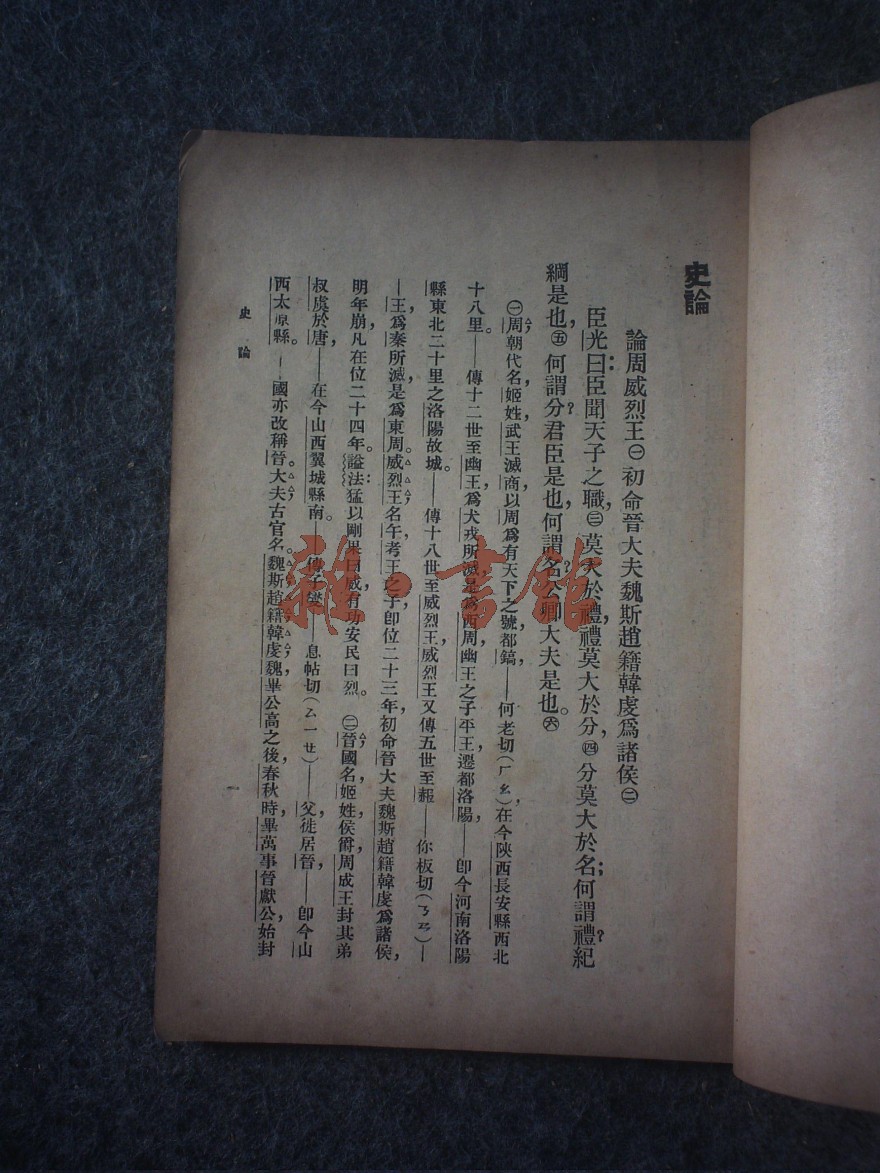 史論
論周威烈王㊀初命晉大夫魏斯趙籍韓虔爲諸侯㊁
臣光曰：臣聞天子之職，㊂莫大於禮，禮莫大於分，㊃分莫大於名；何謂禮？紀
綱是也，㊄何謂分？君臣是也，何謂名？公卿大夫是也。㊅
㊀周，朝代名，姬姓，武王滅商，以周爲有天下之號，都鎬——何老切（ㄏㄠ），在今陝西長安縣西北
十八里。——傳十二世至幽王，爲犬戎所滅，是爲西周，幽王之子平王，遷都洛陽，——卽今河南洛陽
縣東北二十里之洛陽故城。——傳十八世至威烈王，威烈王又傳五世至赧——你板切（ㄋㄢ）—
—王，爲秦所滅，是爲東周。威烈王，名午，考王之子，卽位二十三年，初命晉大夫魏斯趙籍韓虔爲諸侯，
明年，崩，凡在位二十四年。諡法：猛以剛果曰威，有功安民曰烈。㊁晉，國名，姬姓，侯爵，周成王封其弟
叔虞於唐，——在今山西翼城縣南。——傳子燮——息帖切（ㄙㄧㄝ）——父，徙居晉，——卽今山
西太原縣。——國亦改稱晉。大夫，古官名。魏斯，趙籍，韓虔，魏，畢公高之後，春秋時，畢萬事晉獻公，始封
史論
一
雜·書館